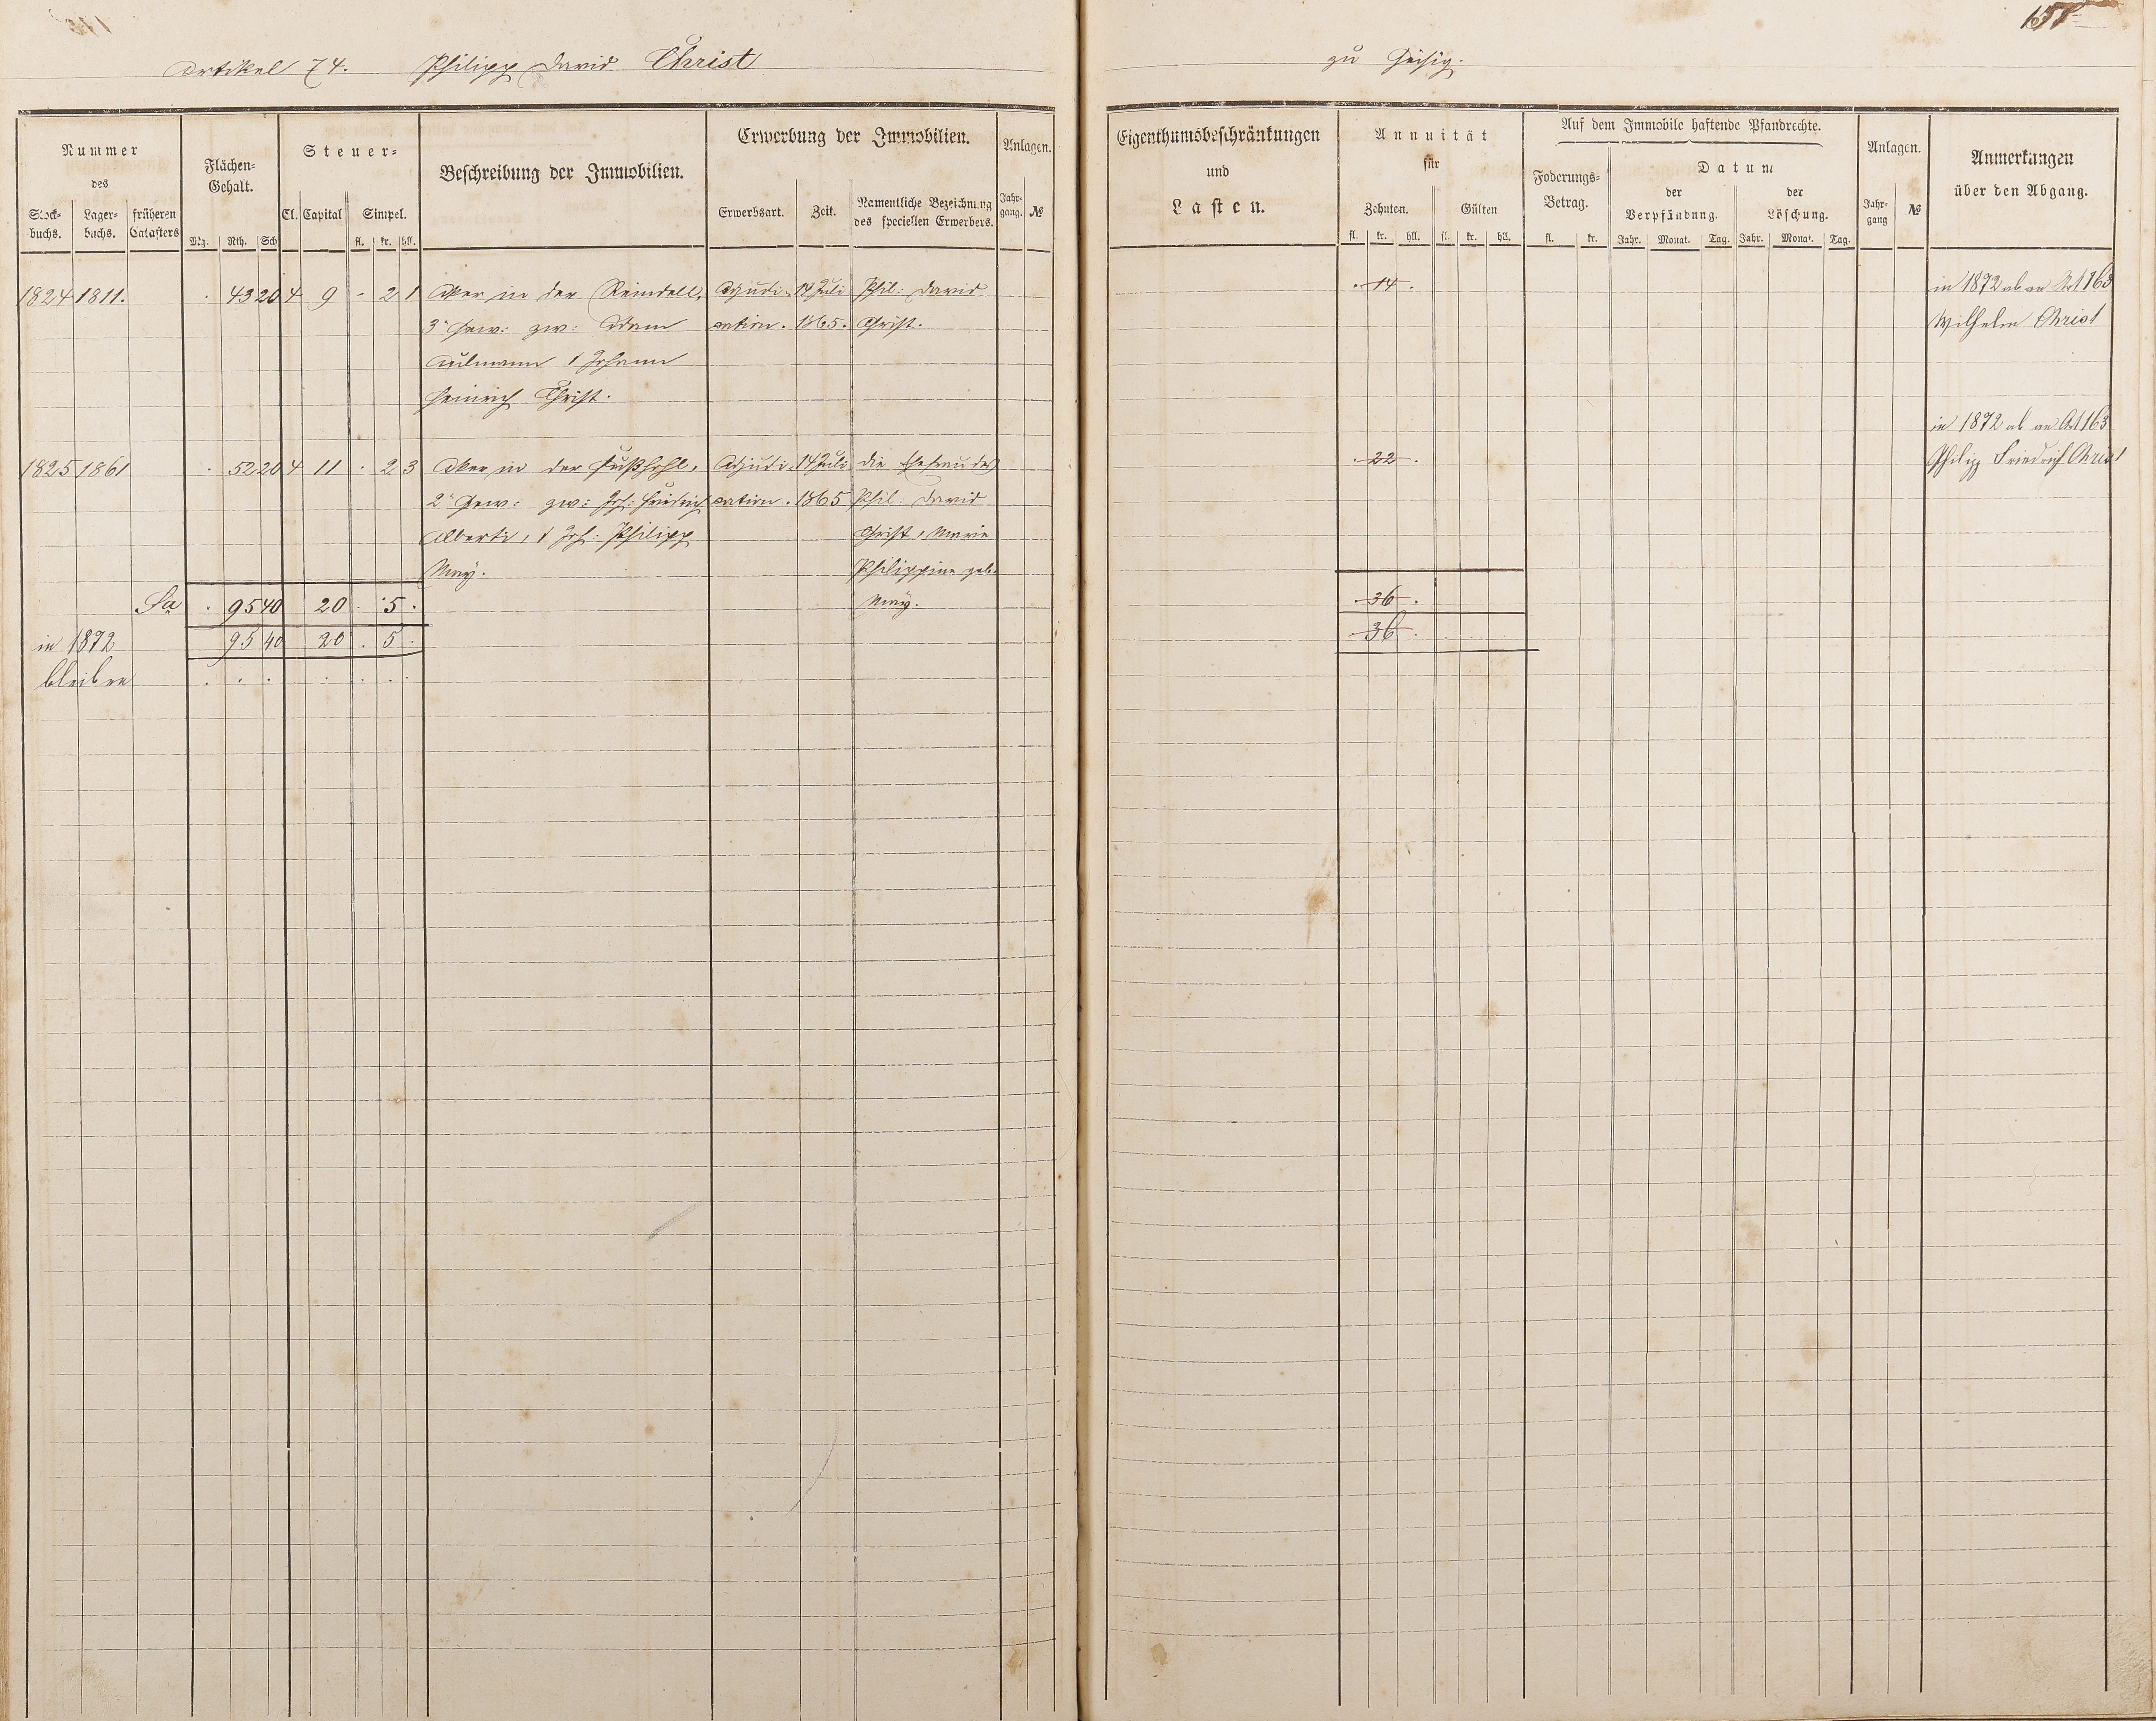 157
Artikel 74. Philipp David Christ zu Geisig.
Nummer des
Stock-buchs. Lager-buchs. früheren Catasters
Flächen-Gehalt.
Mg. Rth. Sch
Steuer-
Cl. Capital Simpel.
fl. kr. hll.
Beschreibung der Immobilien.
Erwerbung der Immobilien.
Erwerbsart. Zeit. Namentliche Bezeichnung des speciellen Erwerbers.
Anlagen.
Jahr-gang. №
Eigenthumsbeschränkungen und Lasten.
Annuität für
Zehnten. Gülten
fl. kr. hll. fl. kr. hll.
Auf dem Immobile haftende Pfandrechte.
Foderungs-Betrag.
fl. kr.
Datum
der Verpfändung. der Löschung.
Jahr. Monat. Tag. Jahr. Monat. Tag.
Anlagen.
Jahr-gang №
Anmerkungen über den Abgang.
1824 1811. . 43 20 4 9 - 2 1 Aker in der Reindell, Adjudi- 14 Juli Phil: David . 14 . in 1872 ab an Art 163
3" Gew: zw: Adam cation. 1865. Christ. Wilhelm Christ
Aulmann & Johann
Heinrich Christ.
in 1872 ab an Art 163
1825 1861 . 52 20 4 11 . 2 3 Aker in der Fußhohl, Adjudi- 14 Juli die Ehefrau des . 22 . Philipp Friedrich Christ
2" Gew: zw: Joh: Friedrich cation. 1865 Phil: David
Alberti, & Joh: Philipp Christ, Marie
May. Philippine geb.
Sa . 95 40 20 . 5 . May. . 36 .
in 1872 95 40 20 . 5 . . 36 .
bleiben . . . . . . .